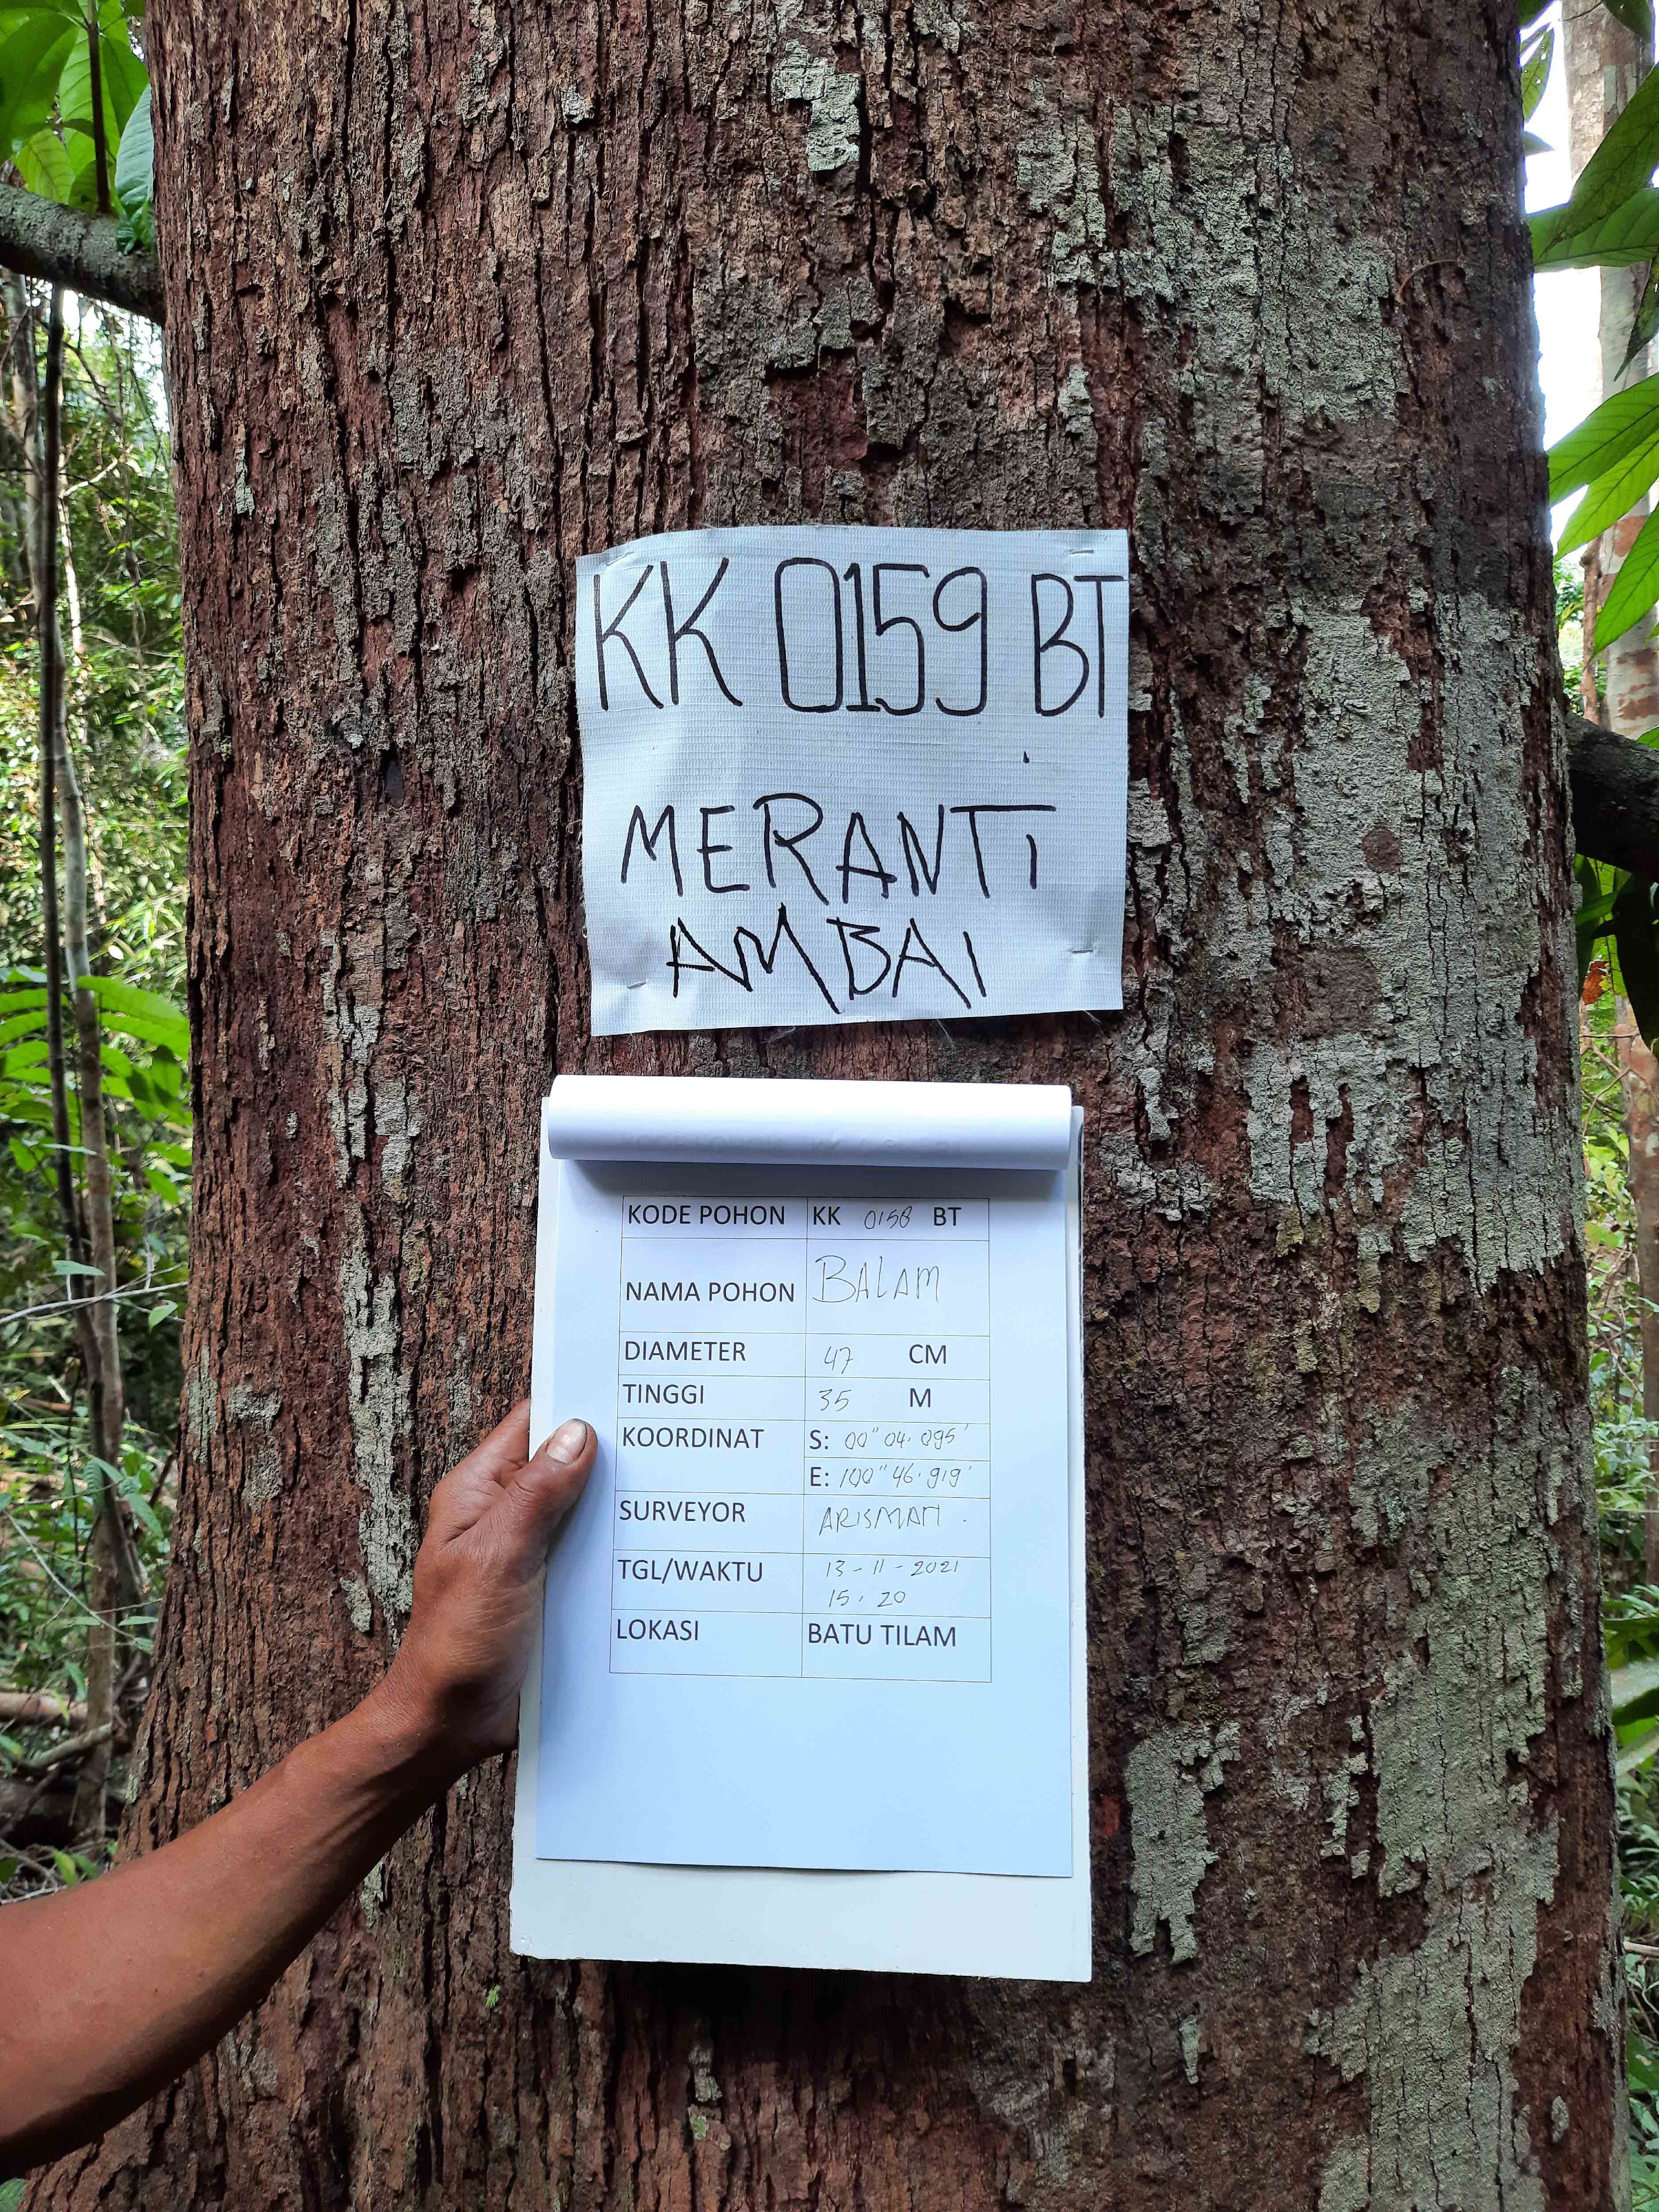 KK 0159 BT
MERANTi
AMBAI
KODE POHON KK 0158 BT
NAMA POHON BALAM
DIAMETER 47 CM
TINGGI 35 M
KOORDINAT S: 00" 04. 095'
E: 100" 46. 919'
SURVEYOR ARISMAN.
TGL/WAKTU 13-11-2021
15.20
LOKASI BATU TILAM